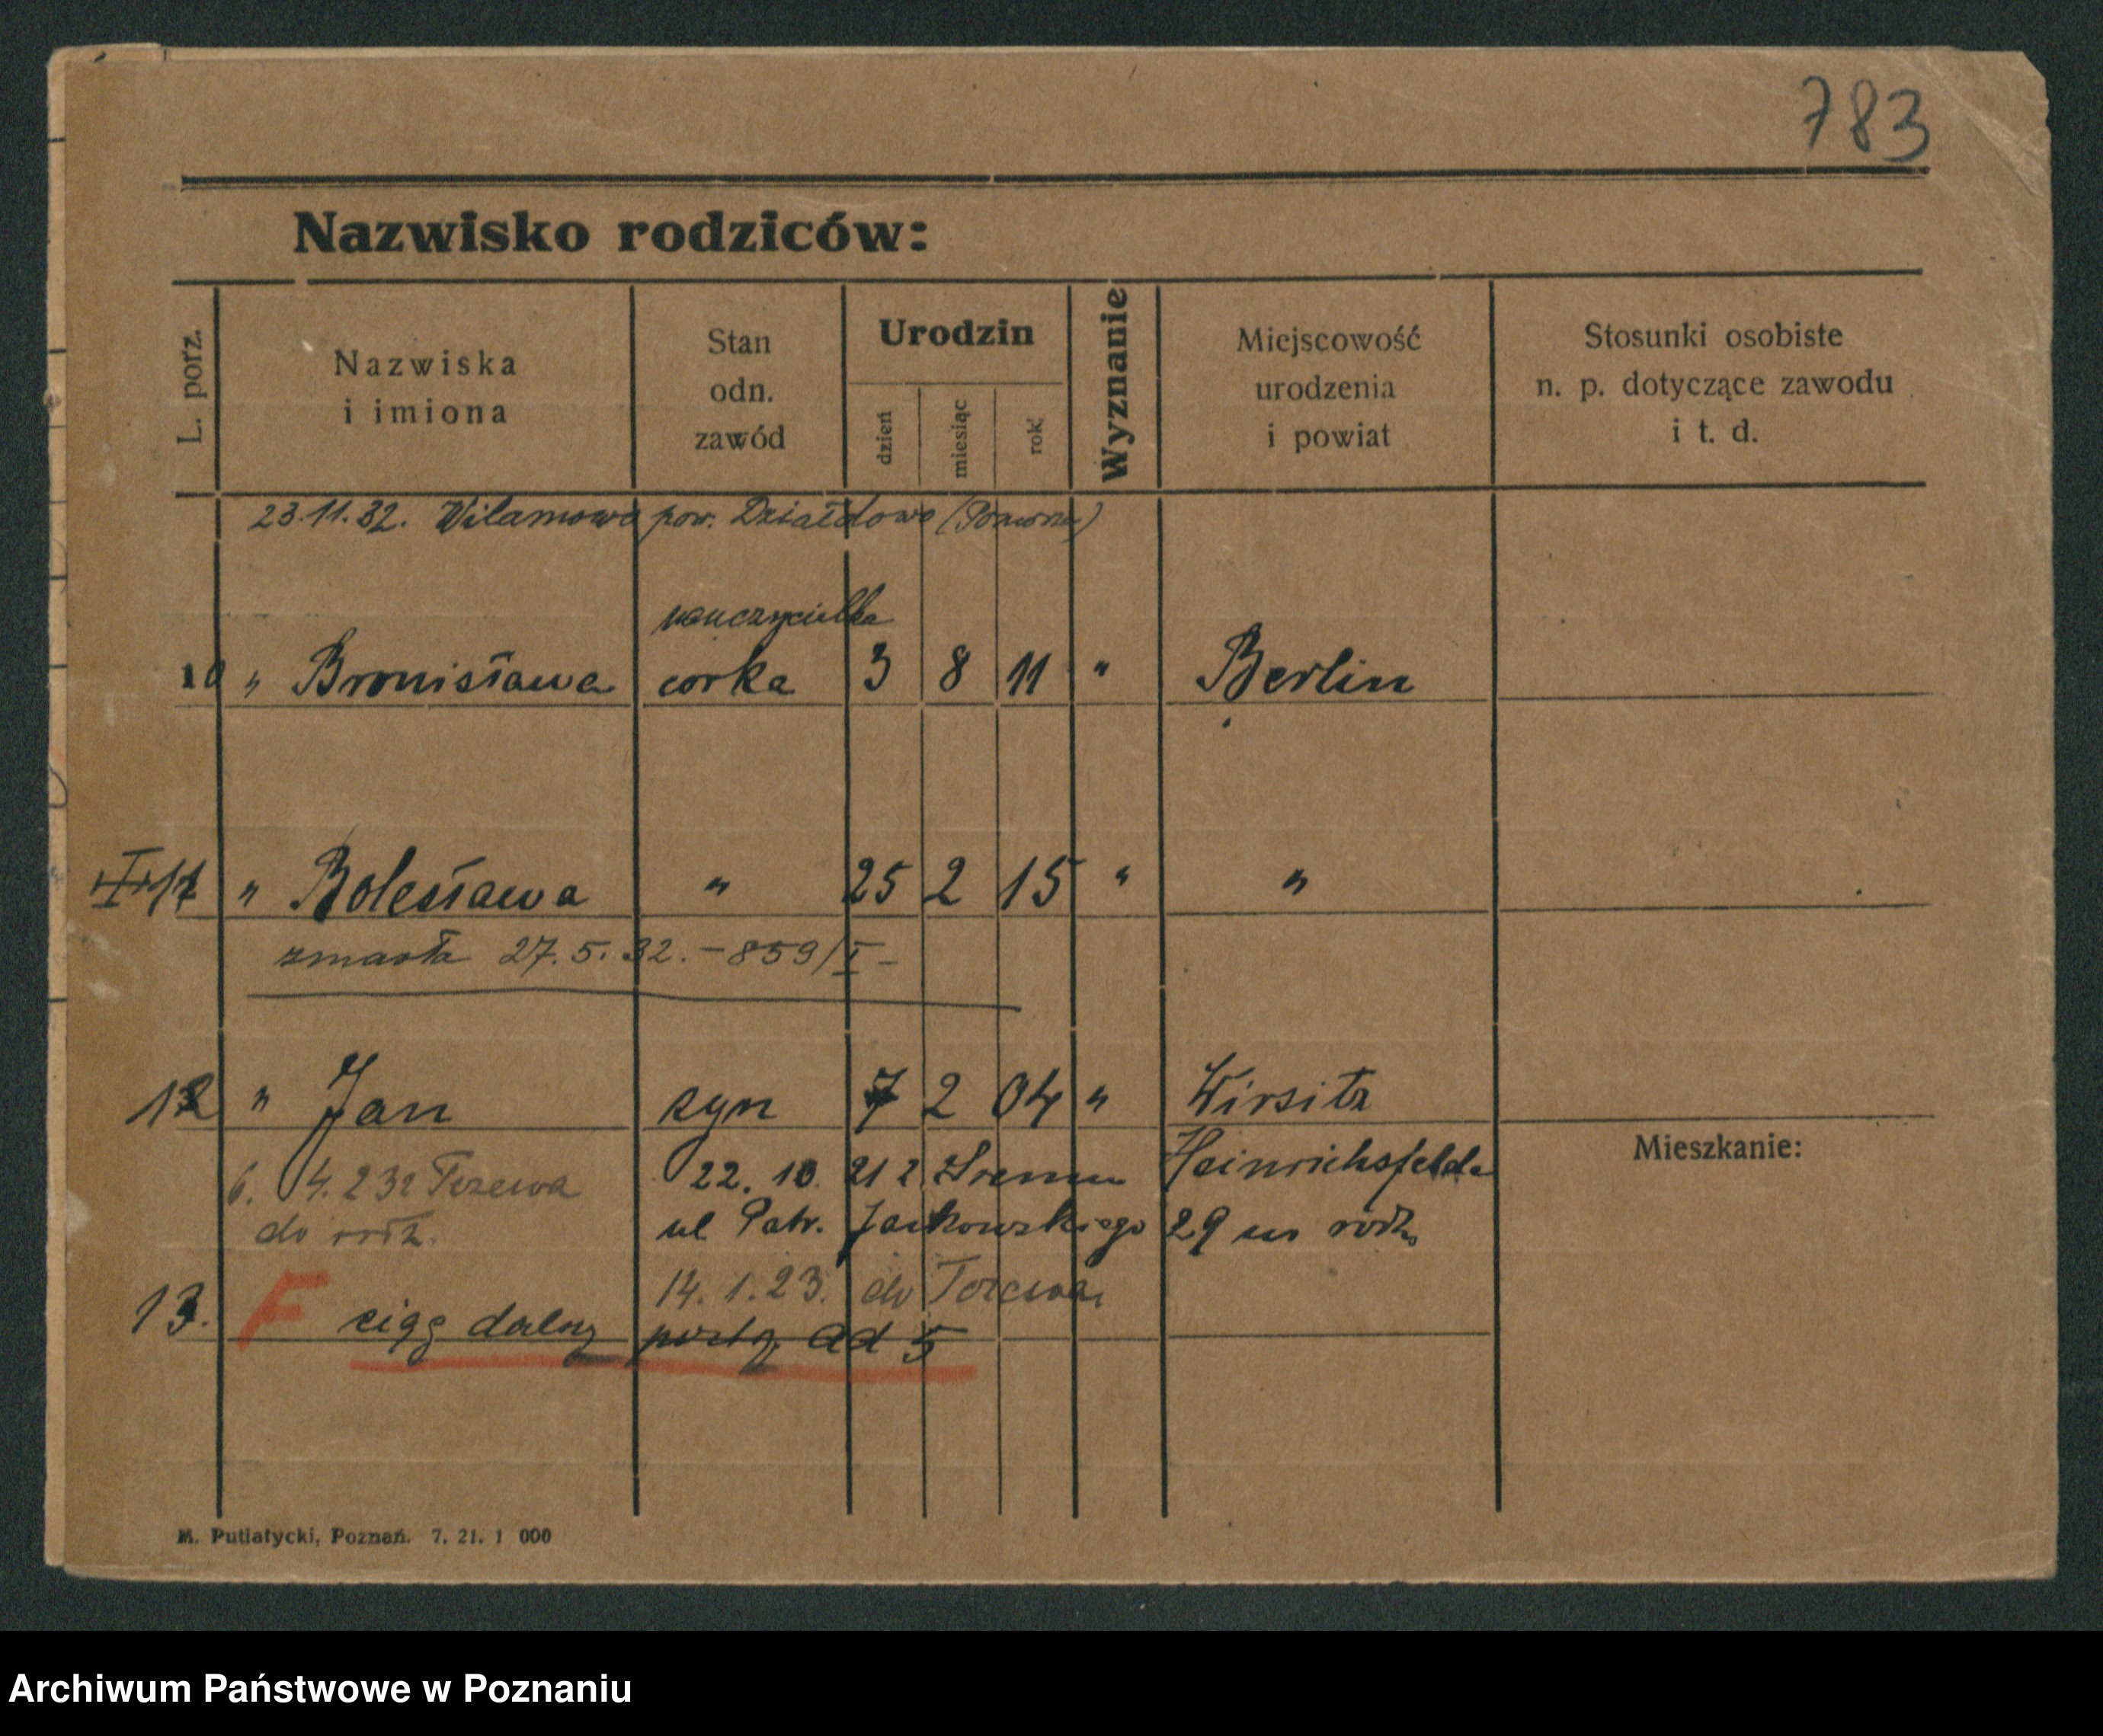 783
Nazwisko rodziców:
L. porz.
Nazwiska
i imiona
Stan
odn.
zawód
Urodzin
dzień
miesiąc
rok
Wyznanie
Miejscowość
urodzenia
i powiat
Stosunki osobiste
n. p. dotyczące zawodu
i t. d.
23.11.32. Wilamowo pow. Działdowo
nauczycielka
10 " Bronisława corka 3 8 11 " Berlin
" Bolesława " 25 2 15 " "
zmarła 27.5.32. - 859/I -
12 " Jan syn 7 2 04 " Wirsitz
Mieszkanie:
6. 4. 23 22. 10. 21 z Śremu Heinrichsfelde
do rodz. ul Patr. Jackowskiego 29 u rodz.
14. 1. 23. do
13. F ciąg dalszy ad 5
M. Putiatycki, Poznań. 7. 21. 1 000
Archiwum Państwowe w Poznaniu